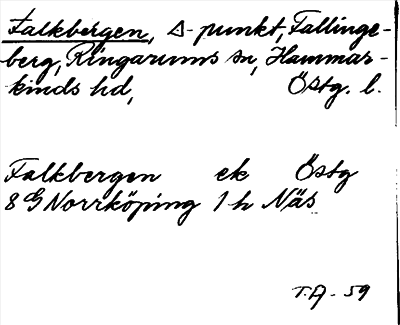 Falkbergen, Δ-punkt, Fallinge-
berg, Ringarums sn, Hammar-
kinds hd, Östg. l.
Falkbergen ek Östg
8 G Norrköping 1 h Näs
T.A. 59